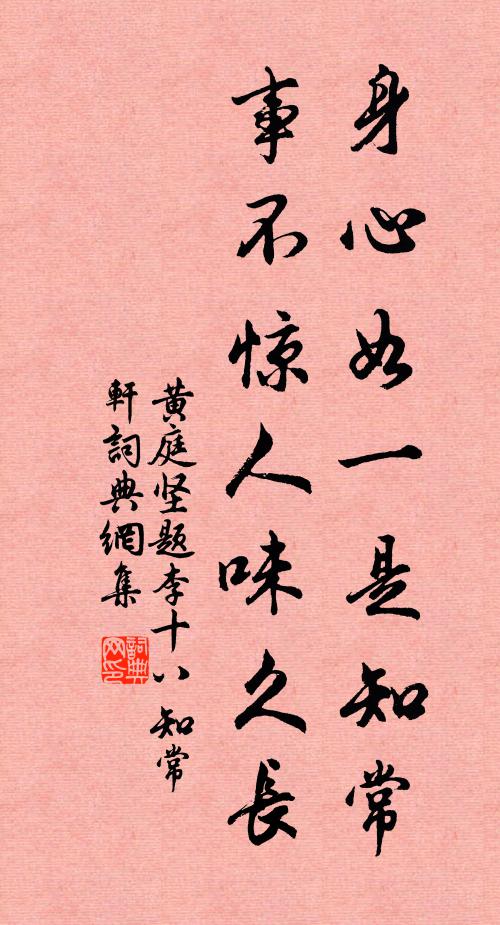 身心如一是知常
事不惊人味久長
黄庭坚題李十八知常
軒詞典網集
詞典网印